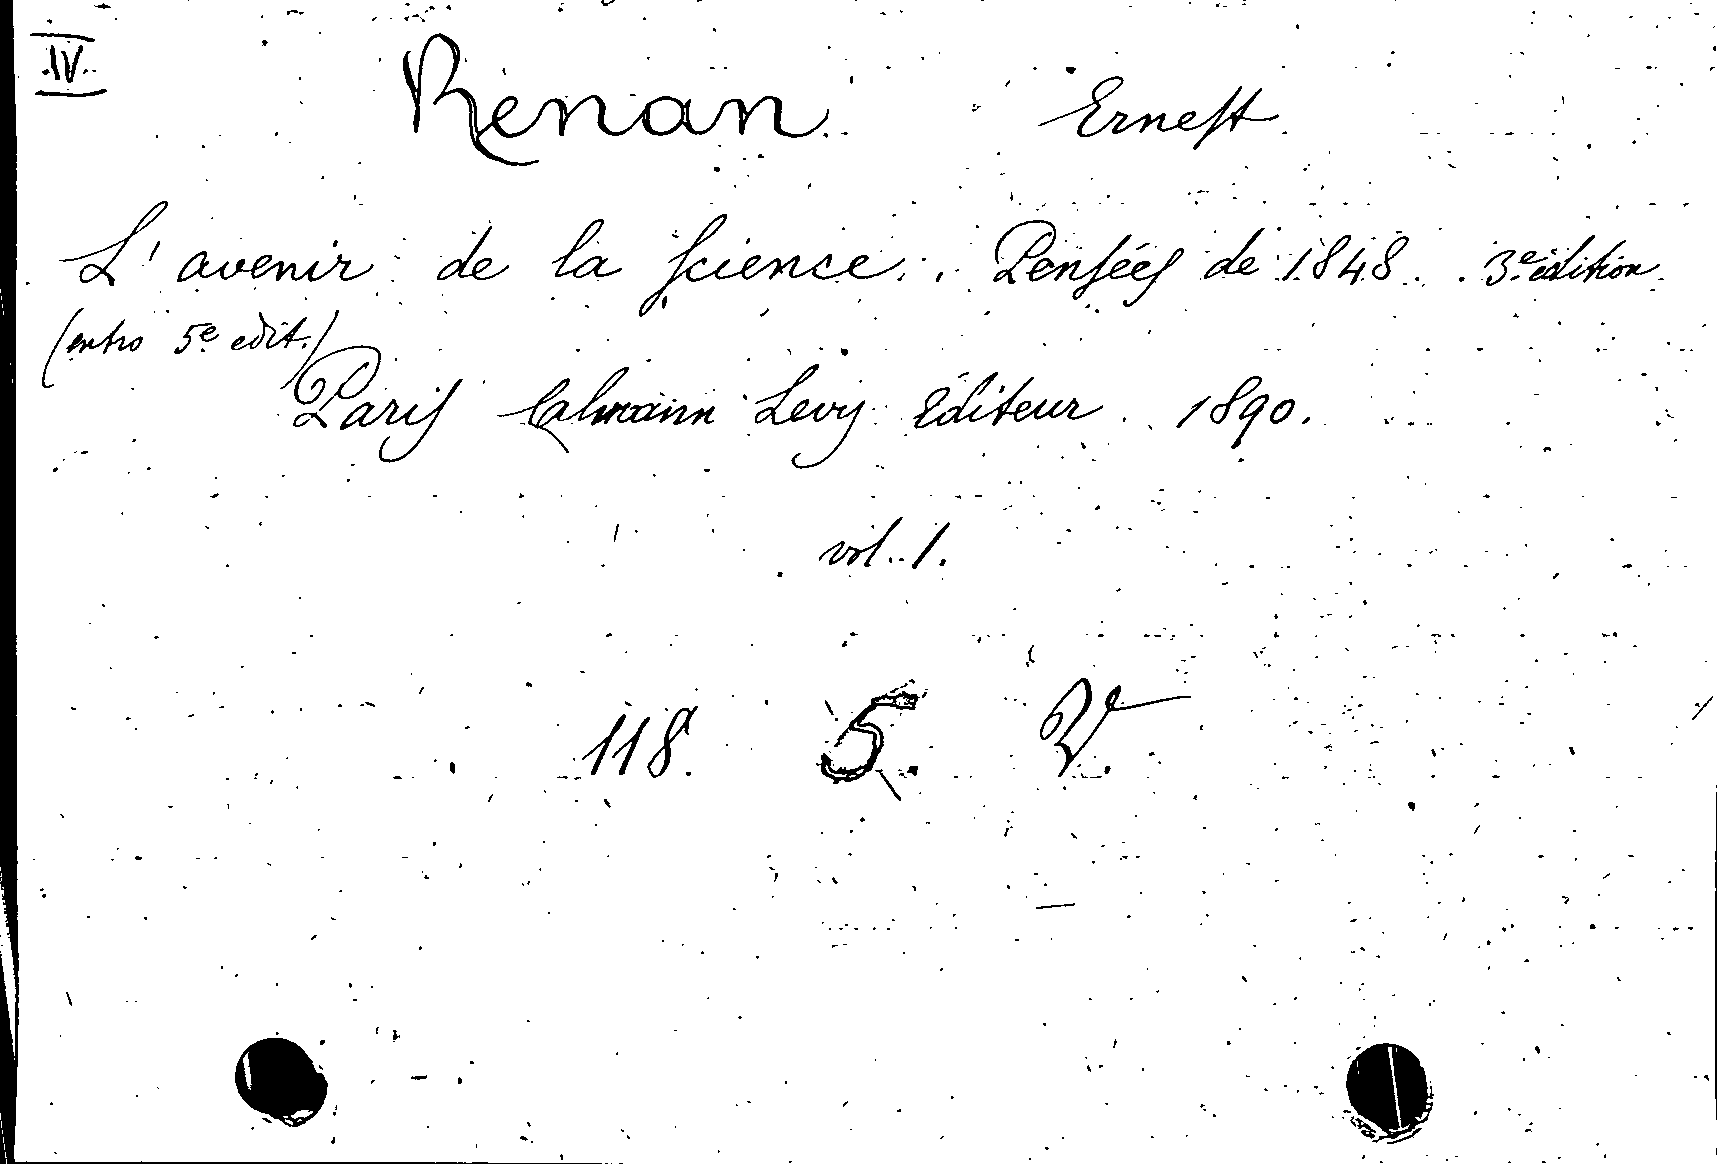 IV.
Renan Ernest
L'avenir de la science. Pensées de 1848. 3e édition
(entro 5e edit.)
Paris Calmann Levy Editeur. 1890.
vol. 1.
118 5 V